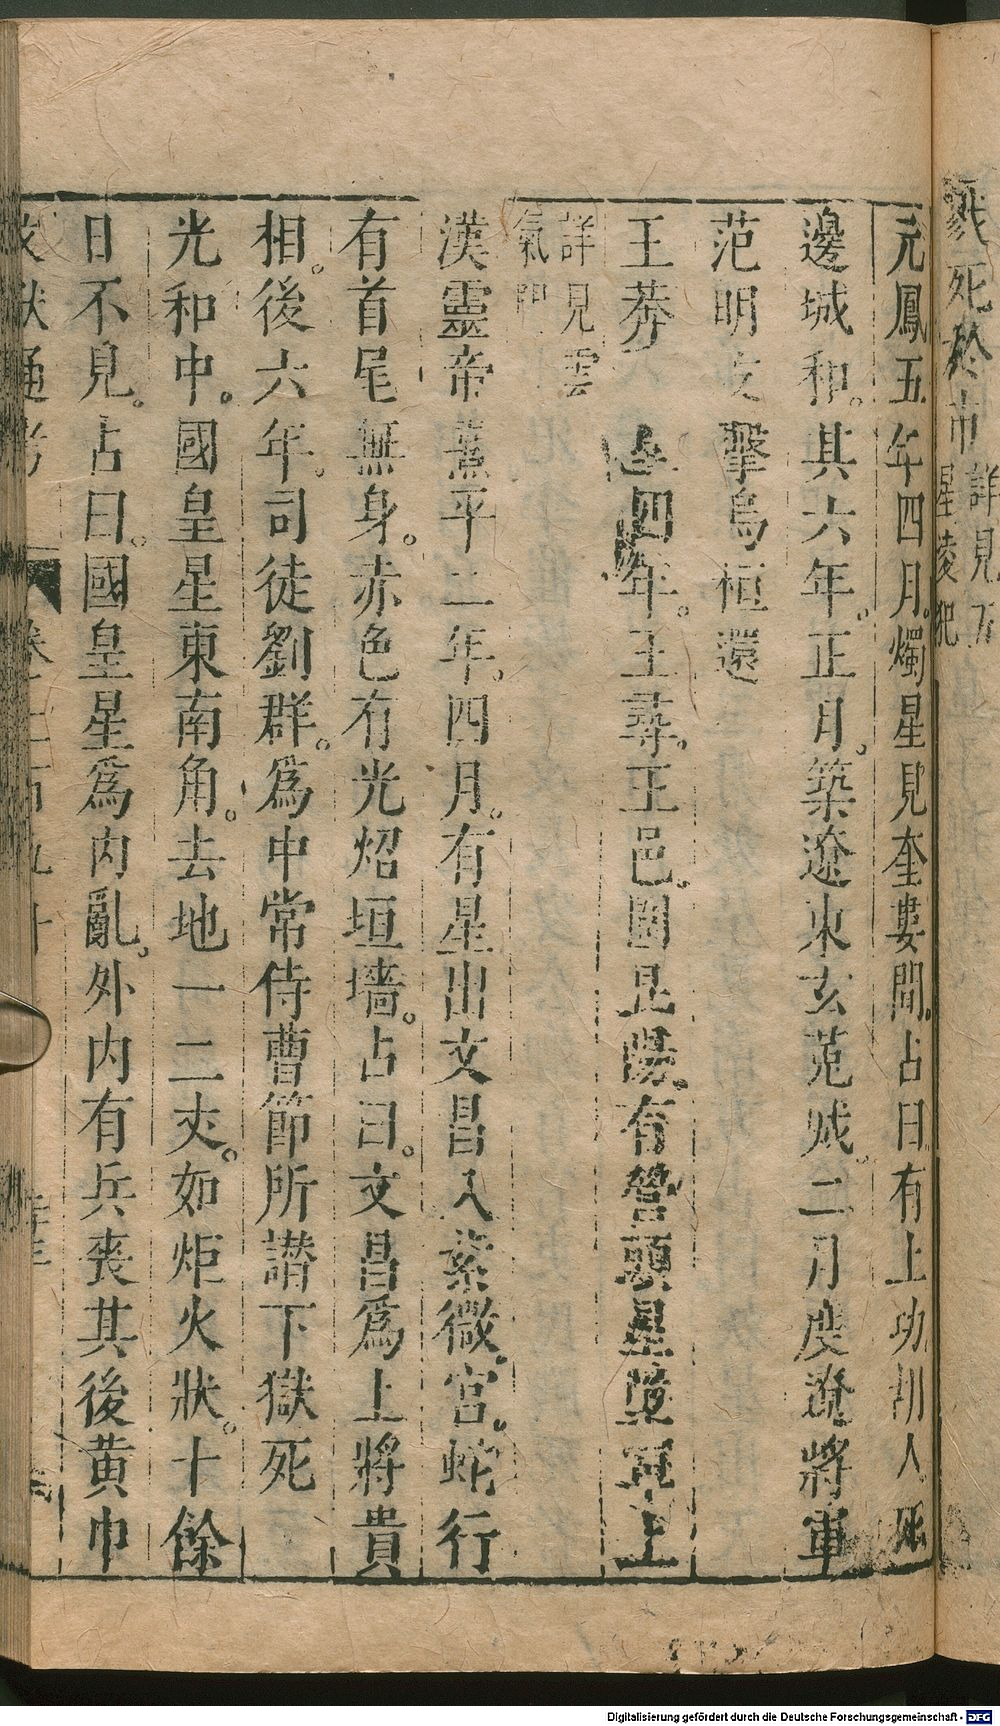 戮死於市詳見五
星凌犯
元鳳五年四月。燭星見奎婁間。占曰有土功胡人死
邊城和。其六年。正月。築遼東玄菟城。二月度遼將軍
范明友擊烏桓還
王莽 四年。王尋。王邑。圍昆陽。有營頭星墮軍上
詳見雲
氣門
漢靈帝熹平二年。四月。有星出文昌入紫微。宮。蛇行
有首尾無身。赤色有光炤垣墻。占曰。文昌為上將貴
相。後六年。司徒劉群。為中常侍曹節所譖下獄死
光和中。國皇星東南角。去地一二丈。如炬火狀。十餘
日不見。占曰。國皇星為內亂。外內有兵喪其後黃巾
文獻通考 卷二百九十
Digitalisierung gefördert durch die Deutsche Forschungsgemeinschaft - DFG